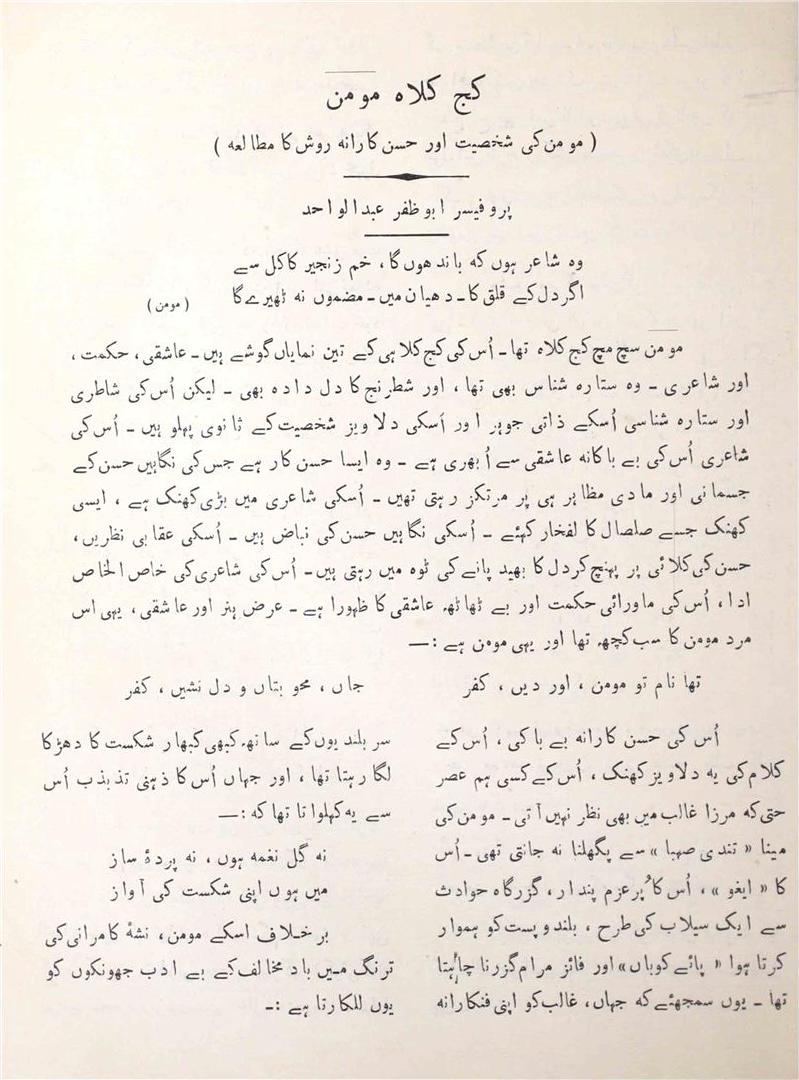 کج کلاہ مومن
( مومن کی شخصیت اور حسن کارانہ روش کا مطالعہ )
پروفیسر ابوظفر عبدالواحد
وہ شاعر ہوں کہ باندھوں گا، خم زنجیر کاکل سے
اگر دل کے قلق کا۔ دھیان میں۔ مضموں نہ ٹھیرے گا
( مومن )
مومن سچ مچ کج کلاہ تھا۔ اُس کی کج کلاہی کے تین نمایاں گوشے ہیں۔ عاشقی، حکمت،
اور شاعری۔ وہ ستارہ شناس بھی تھا، اور شطرنج کا دل دادہ بھی۔ لیکن اُس کی شاطری
اور ستارہ شناسی اُسکے ذاتی جوہر اور اُسکی دلاویز شخصیت کے ثانوی پہلو ہیں۔ اُس کی
شاعری اُس کی بے باکانہ عاشقی سے اُبھری ہے۔ وہ ایسا حسن کار ہے جس کی نگاہیں حسن کے
جسمانی اور مادی مظاہر ہی پر مرتکز رہتی تھیں۔ اُسکی شاعری میں بڑی کھنک ہے، ایسی
کھنک جسے صلصال کا لفخار کہئے۔ اُسکی نگاہیں حسن کی نباض ہیں۔ اُسکی عقابی نظریں،
حسن کی کلائی پر پہنچ کر دل کا بھید پانے کی ٹوہ میں رہتی ہیں۔ اُس کی شاعری کی خاص الخاص
ادا، اُس کی ماورائی حکمت اور بے ٹھاٹھ عاشقی کا ظہورا ہے۔ عرض ہنر اور عاشقی، یہی اس
مرد مومن کا سب کچھ تھا اور یہی مومن ہے :—
تھا نام تو مومن، اور دیں، کفر
جاں، محو بتاں و دل نشیں، کفر
اُس کی حسن کارانہ بے باکی، اُس کے
کلام کی یہ دلاویز کھنک، اُس کے کسی ہم عصر
حتی کہ مرزا غالب میں بھی نظر نہیں آتی۔ مومن کی
مینا « تندی صہبا » سے پگھلنا نہ جانتی تھی۔ اُس
کا « ایغو »، اُس کا پُرعزم پندار، گزرگاہ حوادث
سے ایک سیلاب کی طرح، بلند و پست کو ہموار
کرتا ہوا « پائے کوباں » اور فائز مرام گزرنا چاہتا
تھا۔ یوں سمجھئے کہ جہاں، غالب کو اپنی فنکارانہ
سر بلندیوں کے ساتھ کبھی کبھار شکست کا دھڑکا
لگا رہتا تھا، اور جہاں اُس کا ذہنی تذبذب اُس
سے یہ کہلواتا تھا کہ :—
نہ گل نغمہ ہوں، نہ پردۂ ساز
میں ہوں اپنی شکست کی آواز
برخلاف اسکے مومن، نشۂ کامرانی کی
ترنگ میں باد مخالف کے بے ادب جھونکوں کو
یوں للکارتا ہے :-